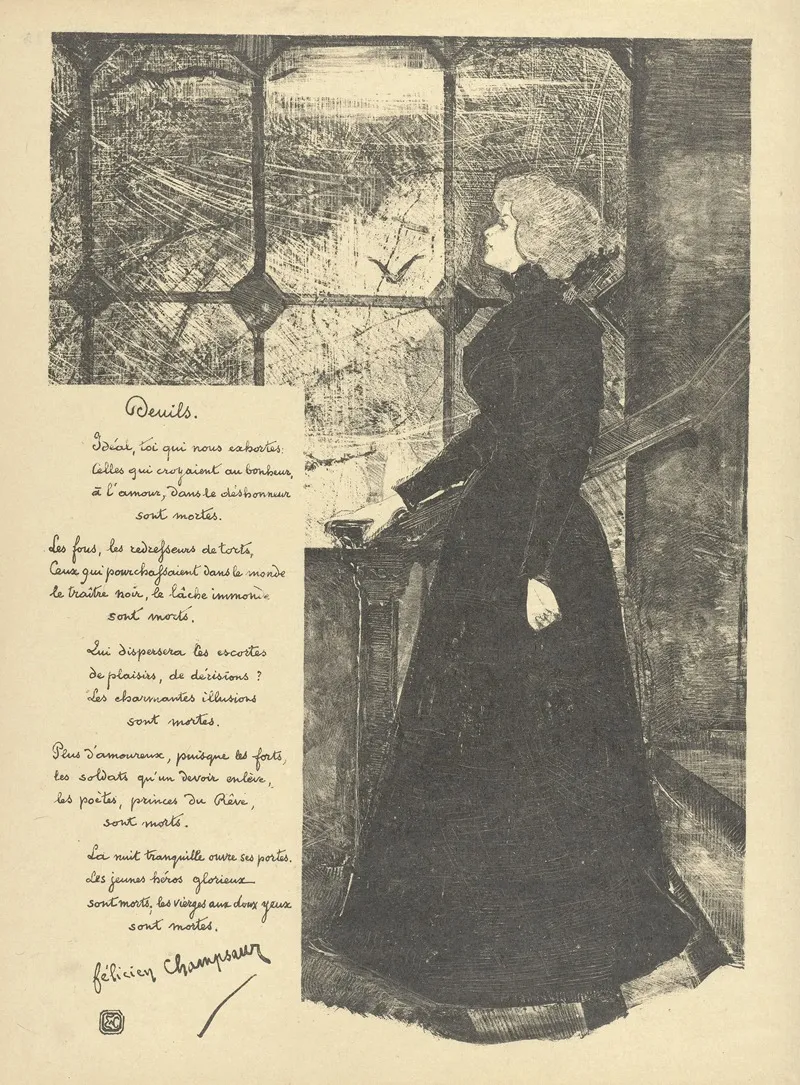 Deuils.
Idéal, toi qui nous exhortes:
Celles qui croyaient au bonheur,
à l'amour, dans le déshonneur
sont mortes.
Les fous, les redresseurs de torts,
Ceux qui pourchassaient dans le monde
le traître noir, le lâche immonde
sont morts.
Qui dispersera les escortes
de plaisirs, de dérisions ?
Les charmantes illusions
sont mortes.
Plus d'amoureux, puisque les forts,
les soldats qu'un devoir enlève,
les poètes, princes du Rêve,
sont morts.
La nuit tranquille ouvre ses portes.
Les jeunes héros glorieux
sont morts; les vierges aux doux yeux
sont mortes.
félicien Champsaur